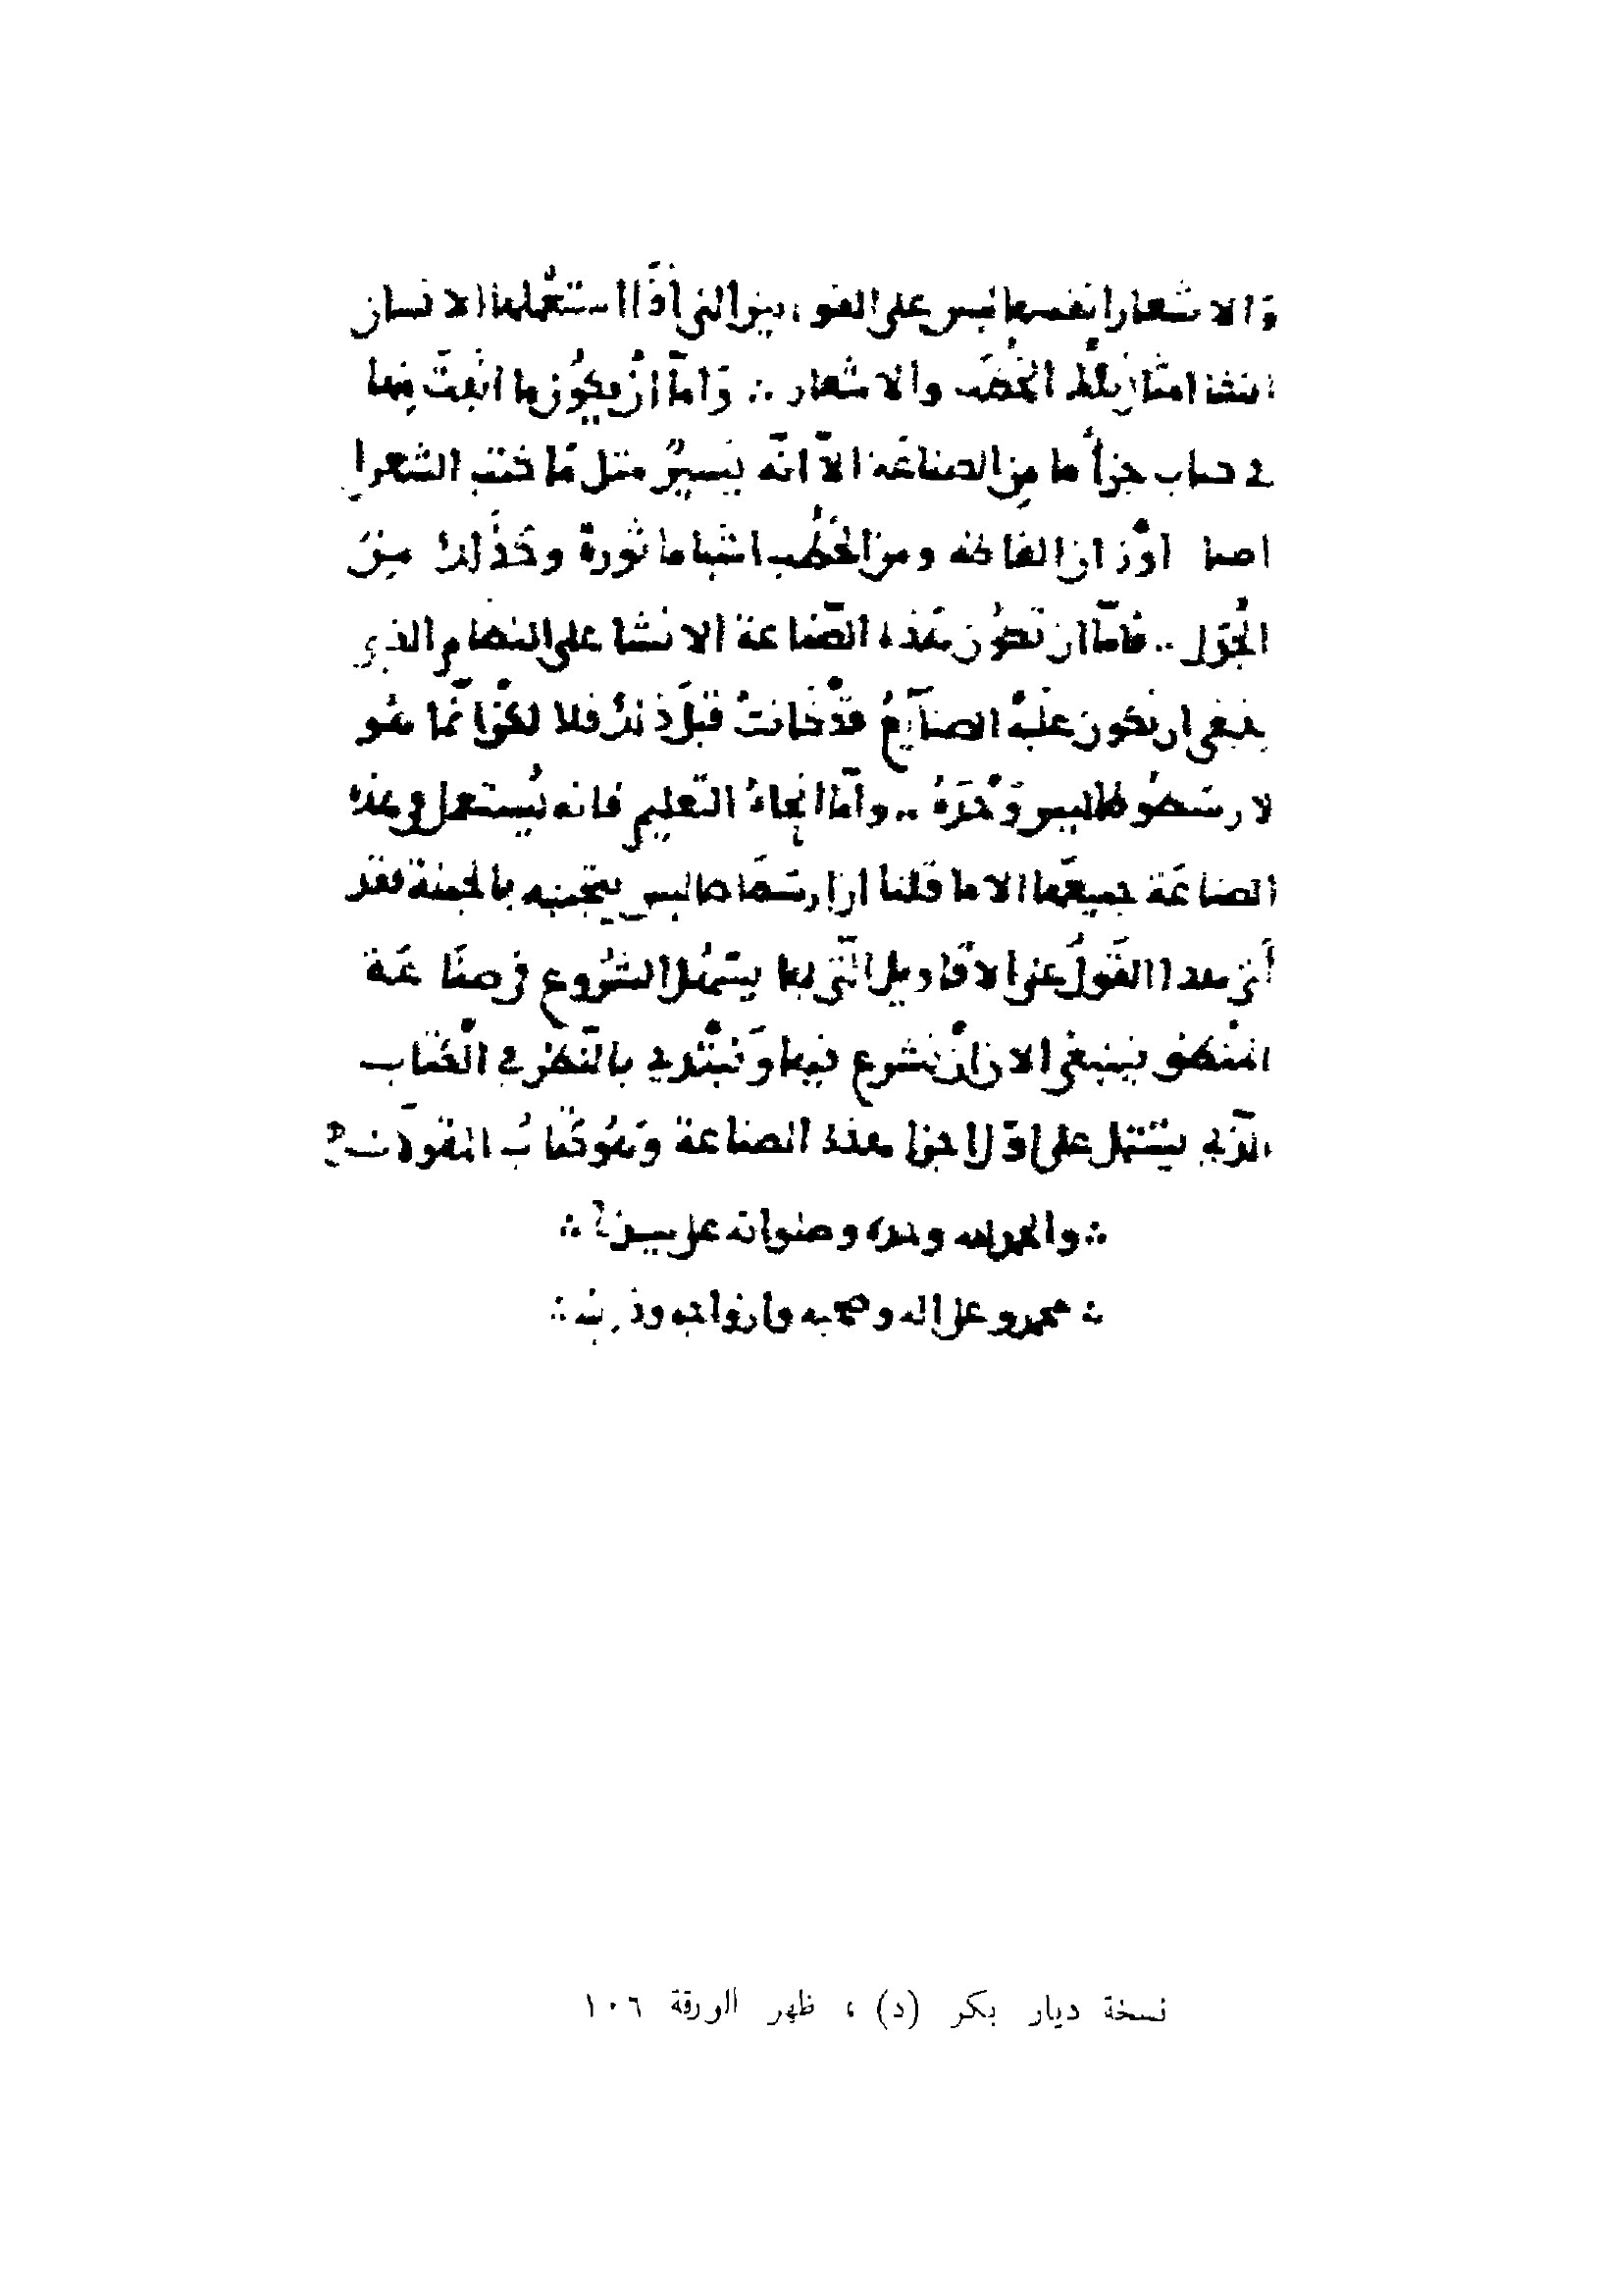 والاشعار انفسها ليس على القوانين التي اذا استعملها الانسان
انشا امثال تلك الخطب والاشعار ∴ وَامّا انْ يكوُن ما اثبت منها
في كتاب جزأ ما من الصناعَة الاّ انّه يَسيرٌ مثل مَا كتب الشعرا
اوْزان الفاكه ومن الخُطب اشيا ماثورة وكَذَلك مِنَ
الجَدل .. فامّا ان تكوُن هَذه الصّناعة الانشا على النظام الذي
ينبغي ان تكون عليْه الصنايعُ قدْ كانتْ قبل ذلك فلا لكنْ انّما هُو
لارسَطُوطاليس وَحْدَهُ .. وامّا انحاءُ التّعليم فانه يُستعمل في هذه
الصناعَة جميعها الا ما قلنا ان ارسَطاطاليس يتجنبه بالجملة فقد
أتى هذا القَولُ على الاقاويل الّتي بها يسَهُل الشُروع في صنَاعَة
المنْطق فينبغي الان انْ نشرع فيها وَنبْتدي بالنّظر في الكتَاب
الّذي يشتمل على اوّل اجزا هذه الصناعة وَهُو كتَابُ المقولَات
∴ والحمد لله وحده وصلواته على سيدنا ∴
∴ محمد وعلى اله وصحبه وازواجه وذريته ∴
نسخة ديار بكر (د) ، ظهر الورقة ١٠٦